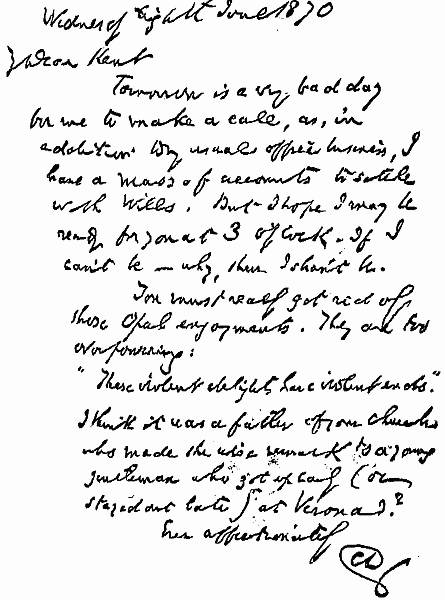 Wednesday Eighth June 1870
My Dear Kent
Tomorrow is a very bad day
for me to make a call, as, in
addition to my usual office business, I
have a mass of accounts to settle
with Wills. But I hope I may be
ready for you at 3 o'clock. If I
can't be – why, then I shan't be.
You must really get rid of
those Opal enjoyments. They are too
overpowering:
"These violent delights have violent ends".
I think it was a father of your church
who made the wise remark to a young
gentleman who got up early (or
stayed out late) at Verona?
Ever affectionately
CD